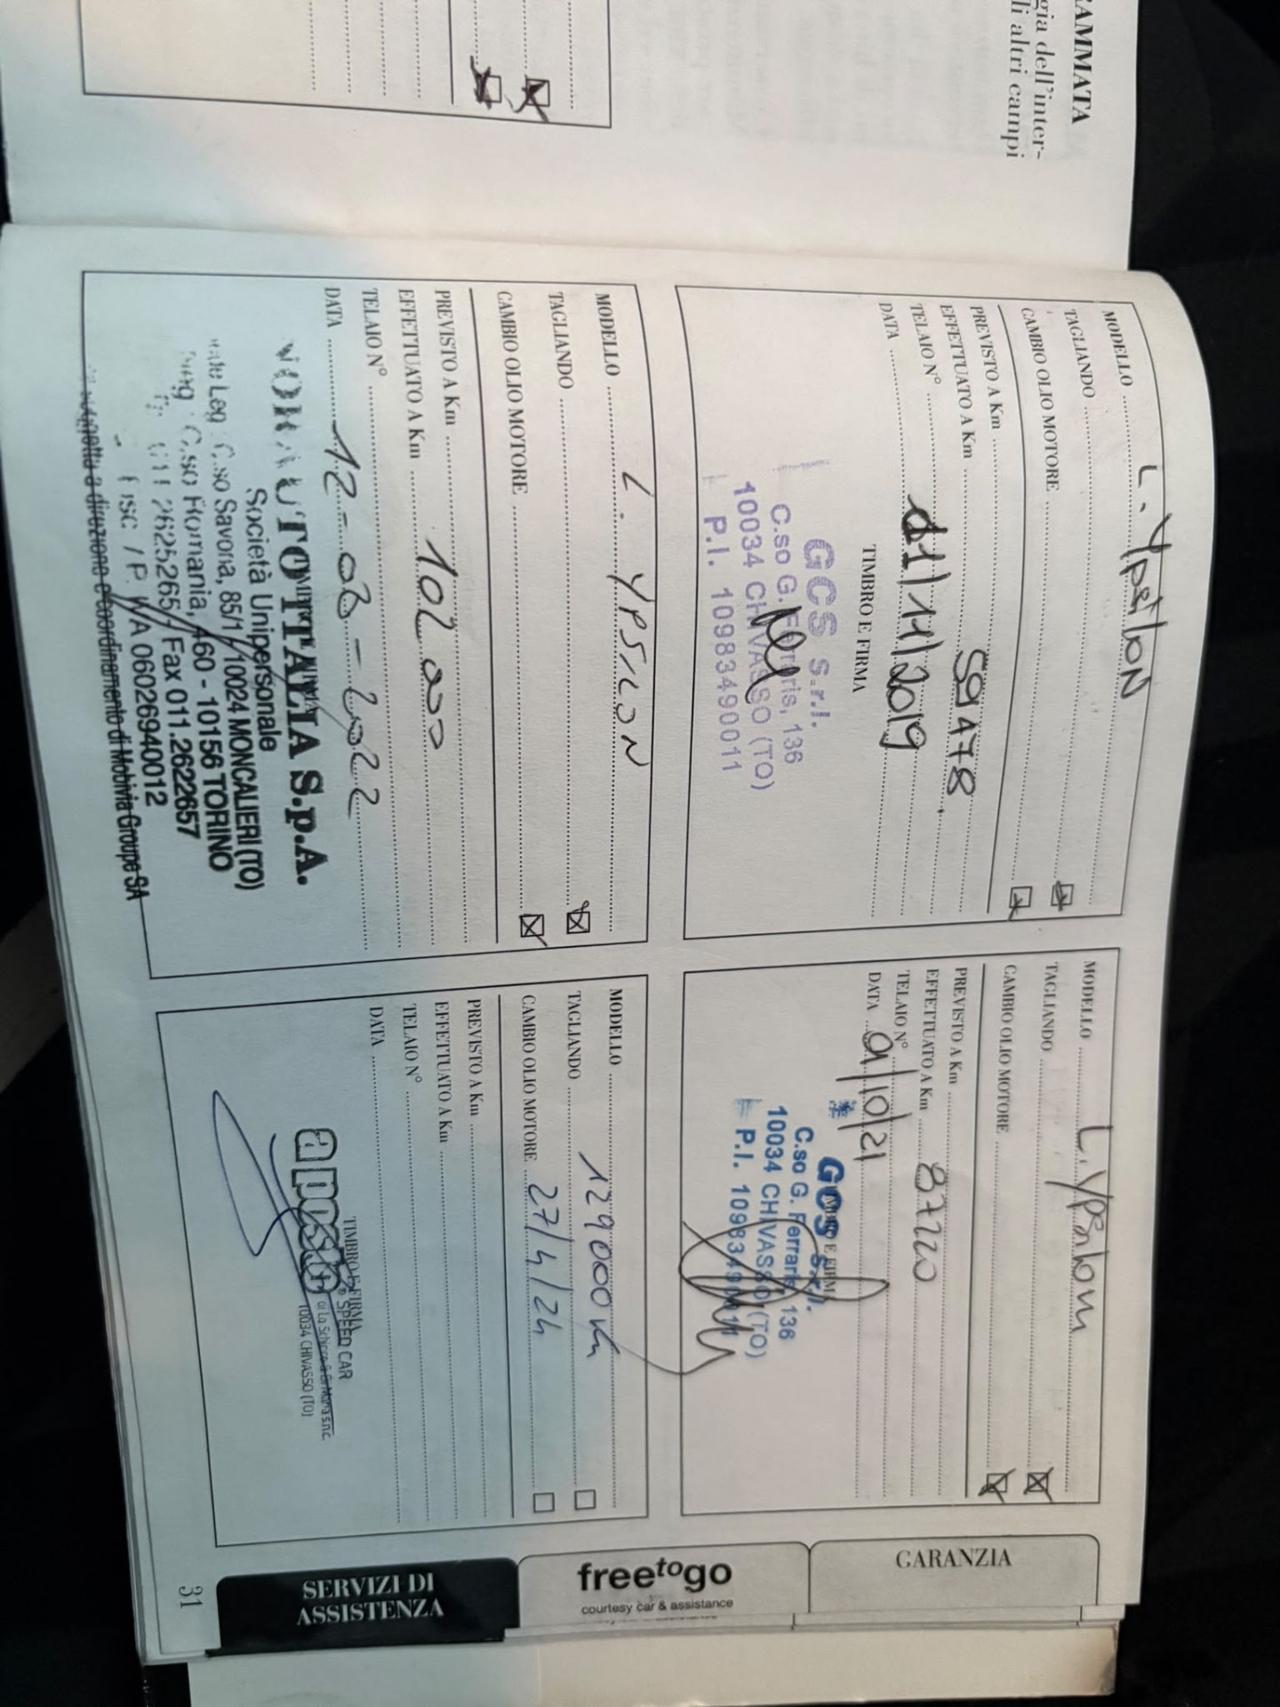 AMMATA
gia dell'inter-
li altri campi
MODELLO L. Ypsilon
TAGLIANDO
CAMBIO OLIO MOTORE
PREVISTO A Km
EFFETTUATO A Km 59478
TELAIO N°
DATA 01/11/2019
TIMBRO E FIRMA
GCS s.r.l.
C.so G. Ferraris, 136
10034 CHIVASSO (TO)
P.I. 10983490011
MODELLO L. Ypsilon
TAGLIANDO
CAMBIO OLIO MOTORE
PREVISTO A Km
EFFETTUATO A Km 87220
TELAIO N°
DATA 9/10/21
GCS s.r.l.
C.so G. Ferraris, 136
10034 CHIVASSO (TO)
P.I. 10983490011
MODELLO L. YPSILON
TAGLIANDO
CAMBIO OLIO MOTORE
PREVISTO A Km
EFFETTUATO A Km 102000
TELAIO N°
DATA 12-03-2022
NORAUTO ITALIA S.p.A.
Società Unipersonale
Leg. C.so Savona, 85/1 10024 MONCALIERI (TO)
C.so Romania, 460 - 10156 TORINO
011 2625265 Fax 011.2622657
Fisc / P. IVA 06026940012
soggetta a direzione e coordinamento di Mobivia Groupe SA
MODELLO
TAGLIANDO 129000 Km
CAMBIO OLIO MOTORE 27/4/24
PREVISTO A Km
EFFETTUATO A Km
TELAIO N°
DATA
TIMBRO E FIRMA
a posto
SPEED CAR
10034 CHIVASSO (TO)
GARANZIA
freetogo
courtesy car & assistance
SERVIZI DI
ASSISTENZA
31